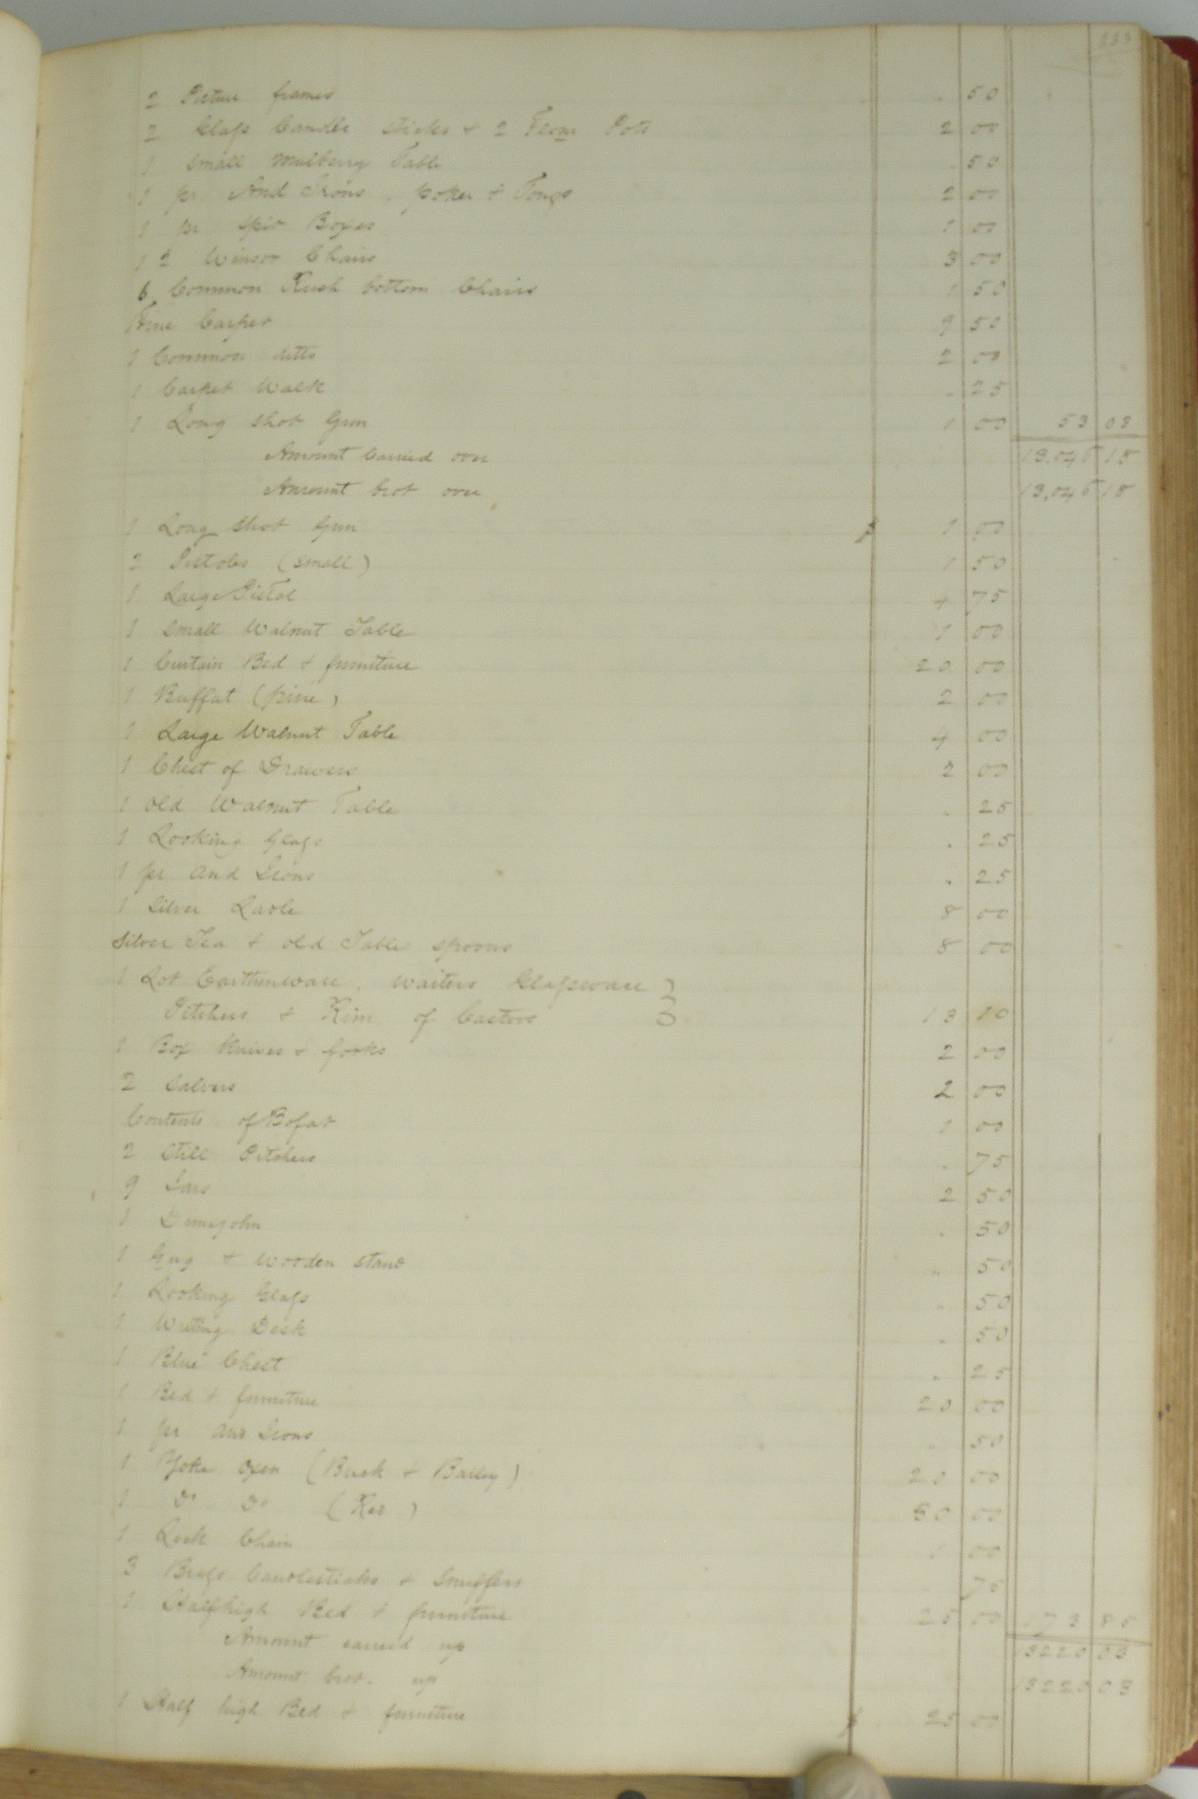 233
2 Picture frames . 50
2 Glass Candle sticks & 2 Flowr Pots 2 00
1 small mulberry Table . 50
1 pr And Irons, poker & Tongs 2 00
1 pr spit Boxes 1 00
1 2 Winsor Chairs 3 00
6 Common Rush bottom Chairs 1 50
Fine Carpet 9 50
1 Common ditto 2 00
1 Carpet Walk . 25
1 Long shot Gun 1 00 53 08
Amount Carried over 13,046 18
Amount brot over 13,046 18
1 Long shot Gun $ 1 00
2 Pistoles (small) 1 50
1 Large Pistol 4 75
1 small Walnut Table 1 00
1 Curtain Bed & furniture 20 00
1 Buffat (pine) 2 00
1 Large Walnut Table 4 00
1 Chest of Drawers 2 00
1 old Walnut Table . 25
1 Looking Glass . 25
1 pr and Irons . 25
1 Silver Ladle 8 00
Silver Tea & old Table spoons 8 00
1 Lot Earthenware, waiters Glassware }
Pitchers & Rim of Castors } 13 10
1 Box Knives & forks 2 00
2 Salvers 2 00
Contents of Bofat 1 00
2 Still Pitchers . 75
9 Jars 2 50
1 Demijohn . 50
1 Gug & wooden stand . 50
1 Looking Glass . 50
1 Writing Desk . 50
1 Blue Chest . 25
1 Bed & furniture 20 00
1 pr and Irons . 50
1 Yoke Oxen (Buck & Bailey) 20 00
1 Do Do (Red) 30 00
1 Lock Chain 1 00
3 Brass Candlesticks & Snuffers 75
1 Half high Bed & furniture 25 00 173 85
Amount carried up 13220 03
Amount brot. up 13220 03
1 Half high Bed & furniture $ 25 00